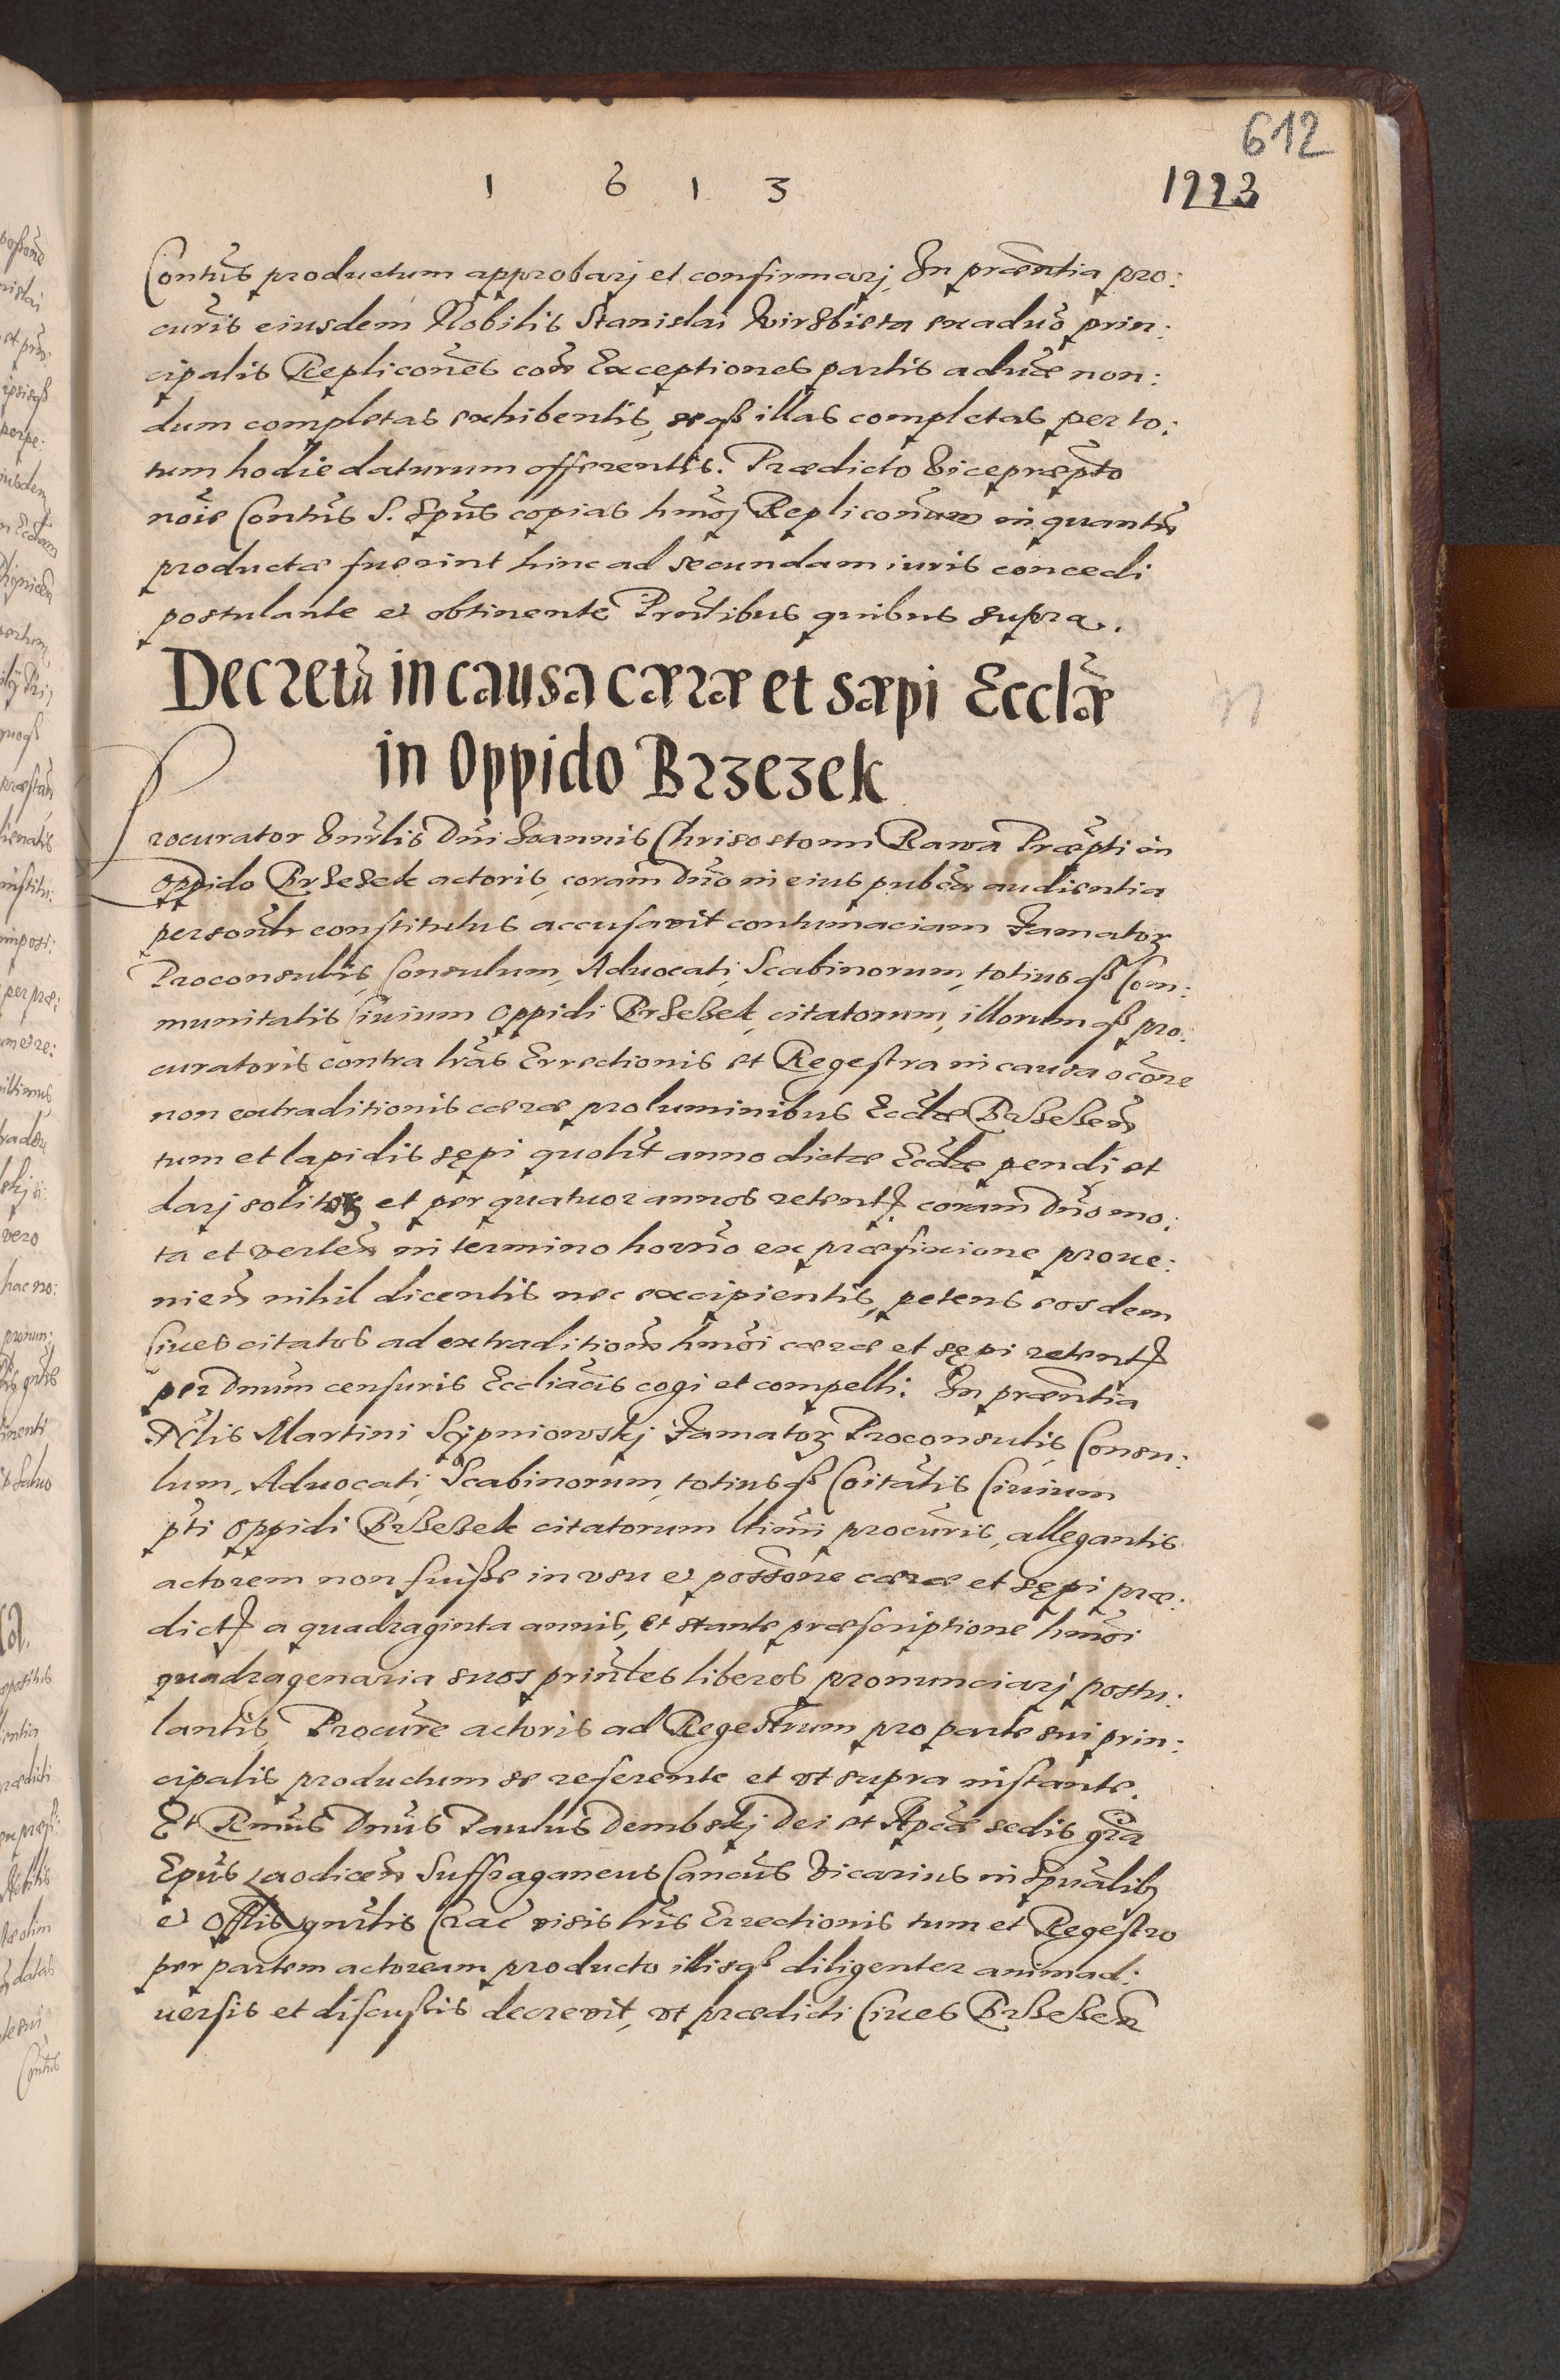 612
1 6 1 3
1223
Contũs productum approbarj et confirmarj, In præñtia pro:
curis eiusdem Nobilis Stanislai Wirzbieta ex aduõ prin:
cipalis Replicoñes coñ Exceptiones partis aduæ non:
dum completas exhibentis, seqß illas completas per to:
tum hodie daturum offerentis. Prædicto Vicepræpto
noie Contũs S. Spũs copias hmõj Repliconum in quantũ
productæ fuerint hinc ad secundam iuris concedi
postulante et obtinente Prñtibus quibus supra.
Decretũ in causa cæræ et sæpi Ecclæ
in Oppido Brzezek
Procurator Vnrlis Dñi Joannis Chrisostomi Rawa Præpti in
oppido Brzezek actoris, coram Dño in eius pubca audientia
personlr constitutus accusavit contumaciam Famatoꝝ
Proconsulis, Consulum, Aduocati, Scabinorum, totiusqß Com:
munitatis Ciuium Oppidi Brzezek, citatorum, illorumqß pro:
curatoris contra lrãs Errectionis et Regestra in causa ocõne
non extraditionis cæræ pro luminibus Ecclæ Brzezeñ
tum et lapidis sępi quolut anno dictæ Ecclæ pendi et
darj solitoꝝ et per quatuor annos retent. coram Dño mo:
ta et verteñ in termino horño ex præfixione proue:
nieñ nihil dicentis nec excipientis, petens eosdem
Ciues citatos ad extraditionẽ hmõi cæræ et sępi retent.
per Dnum censuris Eccliacis cogi et compelli. In præñtia
Nlis Martini Scypniowskj Famatoꝝ Proconsulis, Consu:
lum, Aduocati, Scabinorum, totiusqß Coitãtis Ciuium
pti Oppidi Brzezek citatorum ltimi procuris, allegantis
actorem non fuisse in vsu et possone cæræ et sępi præ:
dict. a quadraginta annis, et stante præscriptione hmõi
quadragenaria suos prinles liberos pronunciarj postu:
lantis, Procure actoris ad Regestrum pro parte sui prin:
cipalis productum se referente et vt supra instante.
Et Rmũs Dnũs Paulus Dembskj Dei et Aplicæ sedis grã
Epũs Laodiceñ Suffraganeus Cancũs Vicarius in Spualibꝫ
et Offlis gnrlis Crac visis lrĩs Errectionis tum et Regestro
per partem actoream producto illisqß diligenter animad:
uersis et discussis decrevit, vt prædicti Ciues Brzezeñ